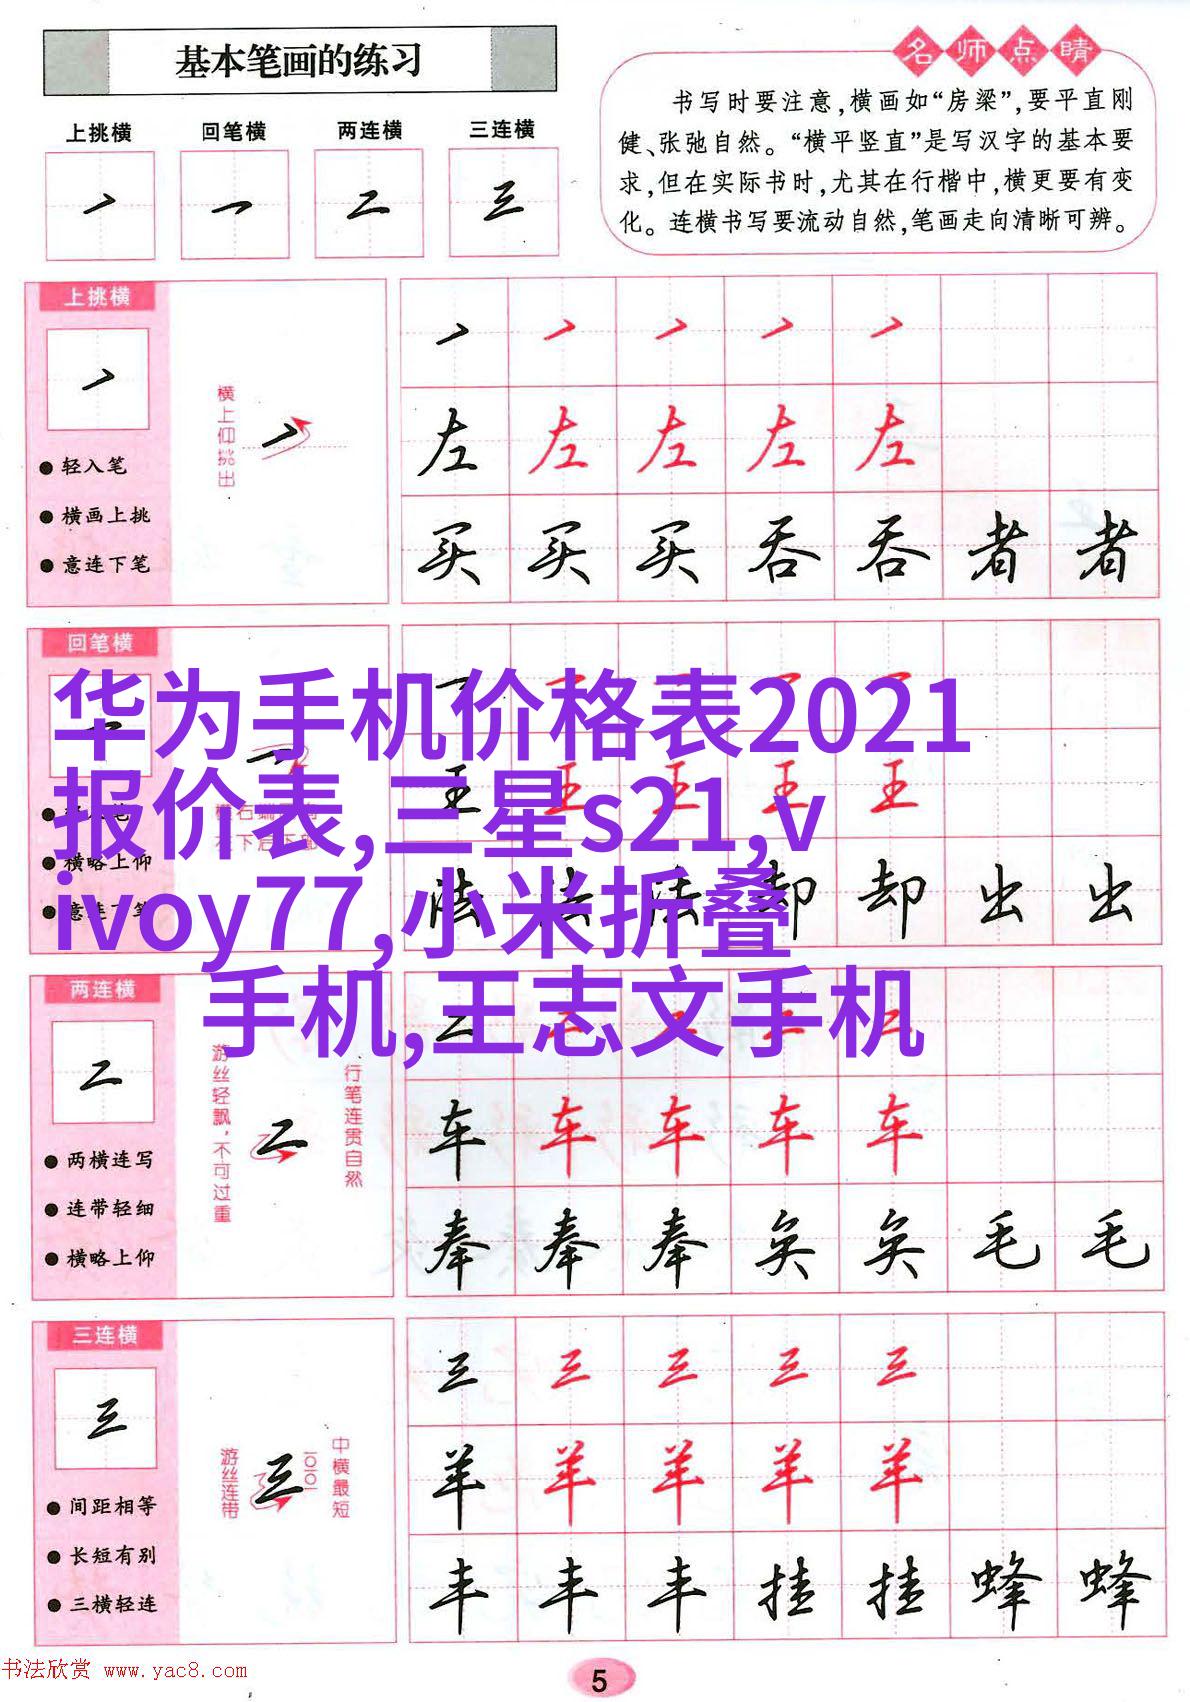 基本笔画的练习
上挑横 回笔横 两连横 三连横
丶 一 二 三
名师点睛
书写时要注意,横画如“房梁”,要平直刚
健、张弛自然。“横平竖直”是写汉字的基本要
求,但在实际书时,尤其在行楷中,横更要有变
化。连横书写要流动自然,笔画走向清晰可辨。
上挑横
●轻入笔
●横画上挑
●意连下笔
横上仰挑出
左 左 左 左 左
买 买 买 吞 吞 者 者
回笔横
华为手机价格表2021
报价表,三星s21,v
ivoy77,小米折叠
手机,王志文手机
王 王 王 王 王
●横略上仰
●意连下笔
法 法 法 却 却 出 出
两连横
二
●两横连写
●连带轻细
●横略上仰
游丝轻飘,不可过重
二
行笔连贯自然
二 二 二 二 二
车 车 车 车 车
奉 奉 奉 奂 奂 毛 毛
三连横
三
●间距相等
●长短有别
●三横轻连
游丝连带
三
中横最短
三 三 三 三 三
羊 羊 羊 羊 羊
丰 丰 丰 挂 挂 蜂 蜂
书法欣赏 www.yac8.com
5